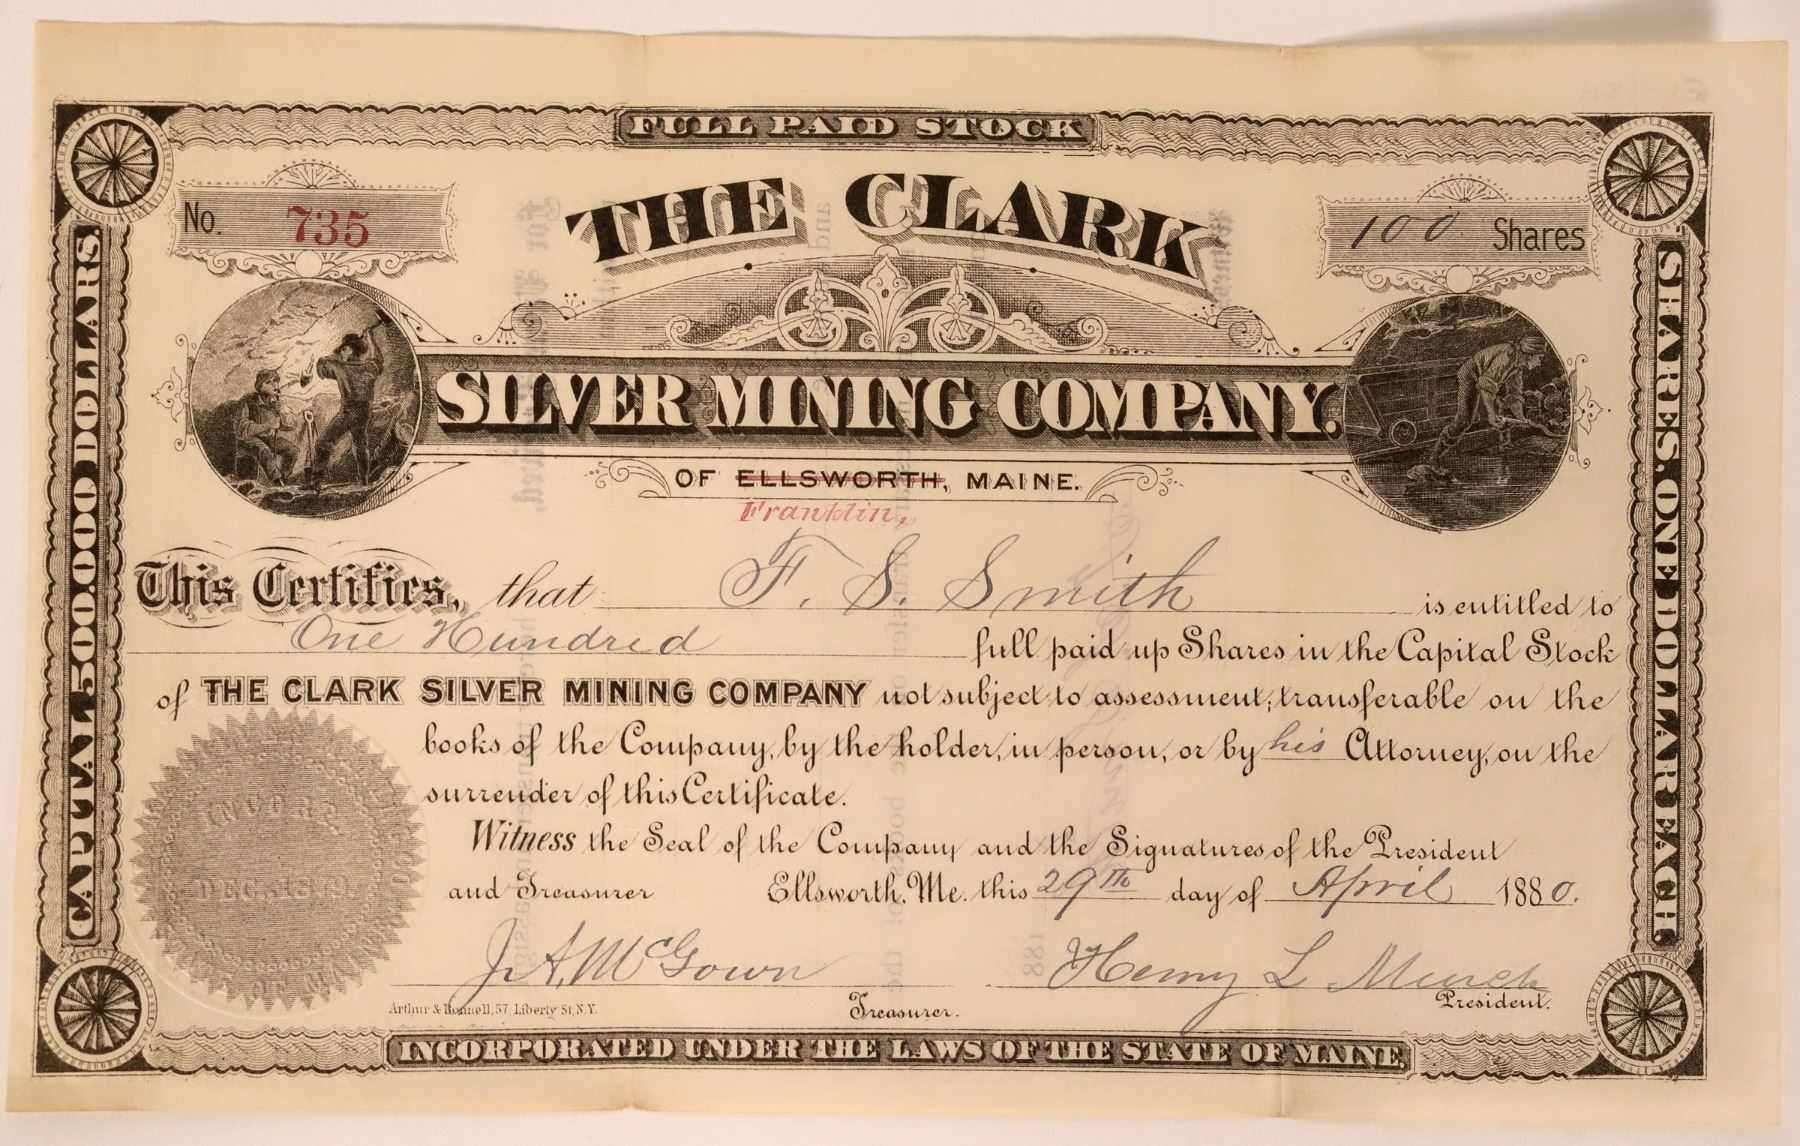 FULL PAID STOCK
No. 735
100 Shares
THE CLARK
SILVER MINING COMPANY.
OF ELLSWORTH, MAINE.
Franklin,
This Certifies, that F. S. Smith is entitled to
One Hundred full paid up Shares in the Capital Stock
of THE CLARK SILVER MINING COMPANY not subject to assessment, transferable on the
books of the Company, by the holder, in person, or by his Attorney, on the
surrender of this Certificate.
Witness the Seal of the Company and the Signatures of the President
and Treasurer Ellsworth, Me. this 29th day of April 1880.
J. A. McGown Henry L Munch
Treasurer. President.
Arthur & Bonnell, 57 Liberty St, N.Y.
INCORPORATED UNDER THE LAWS OF THE STATE OF MAINE.
CAPITAL 500.000 DOLLARS.
SHARES. ONE DOLLAR EACH
INCORP.
DEC. 1879